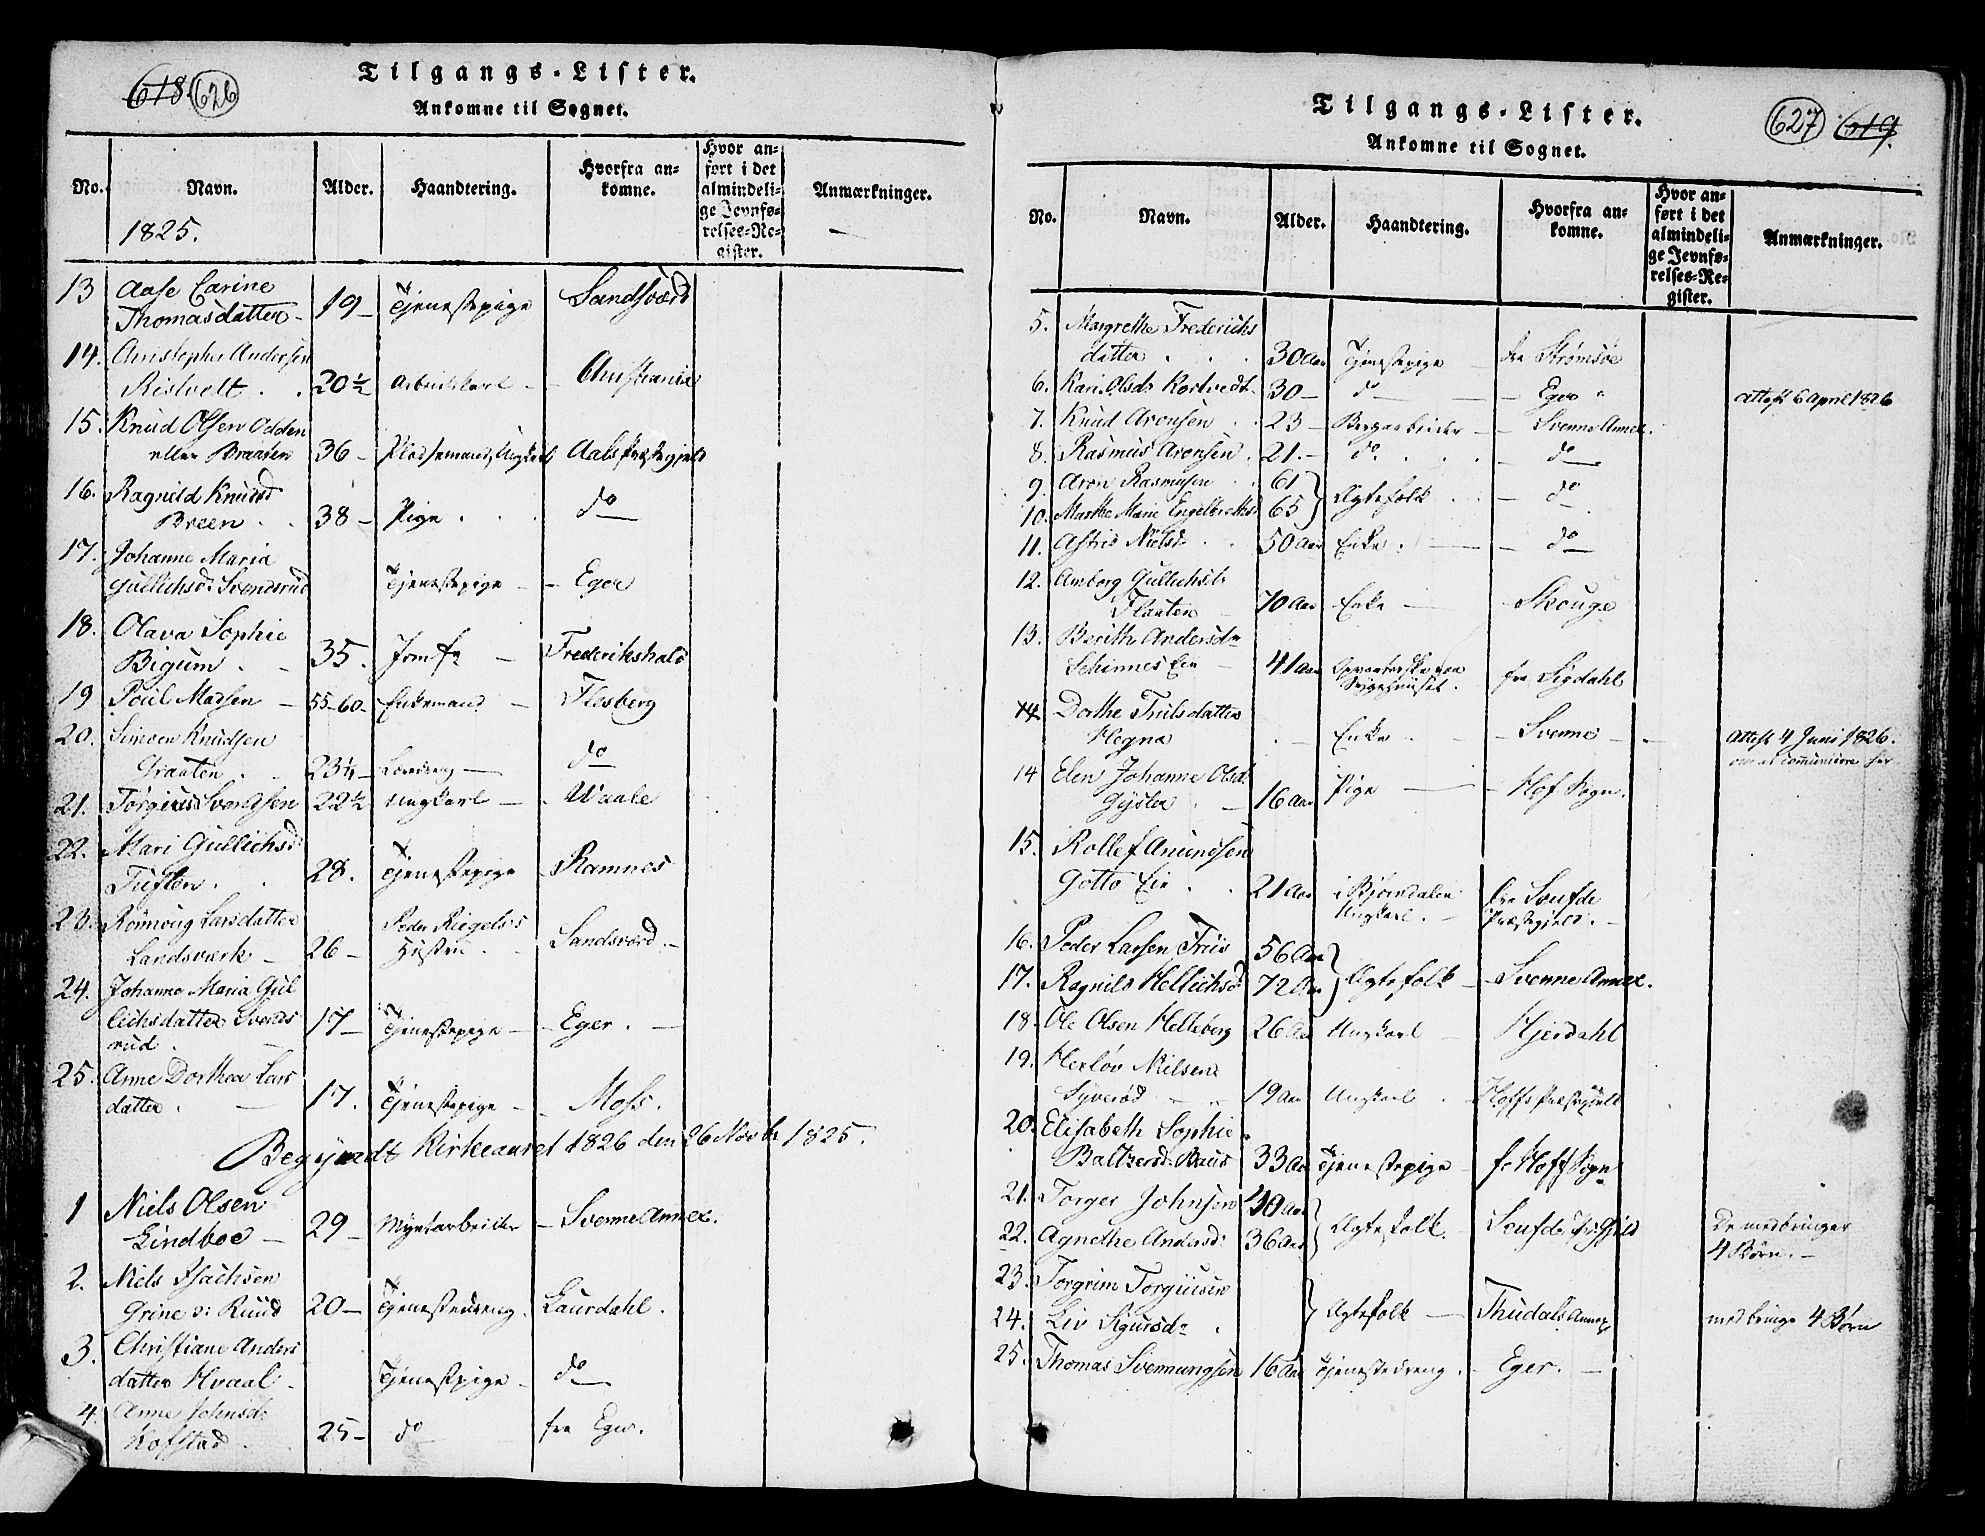 618. 626
Tilgangs-Lister.
Ankomne til Sognet.
No. Navn. Alder. Haandtering. Hvorfra ankomne. Hvor anført i det almindelige Jevnførelses-Register. Anmærkninger.
1825.
13 Aase Carine
Thomasdatter 19 Tjenestepige Sandsværd
14. Christopher Andersen
Ristvelt . . 20½ Arbeidskarl Christiania
15. Knud Olsen Odden
eller Braaten 36 Pladsemand, Aals Præstegjeld
16. Ragnild Knudsd
Breen . . 38 Pige . . do
17. Johanne Maria
Gullichsd: Svendsrud Tjenestepige Eger
18. Olava Sophie
Bigum . 35. Jomfr Frederikshald
19 Poul Madsen 55-60 Enkemand Flesberg
20. Simen Knudsen
Graaten . 23¼ do
21. Torgius 22½ Ungkarl Waale
22. Mari Gullichsd:
Tuften . . 28. Tjenestepige Ramnes
23. Rönnoug Larsdatter
Landsværk 26 Hustru . Sandsværd.
24. Johanne Maria Gul
lichsdatter Svends
rud . 17 Tjenestepige Eger.
25. Anne Dorthea Lars
datter . 17. Tjenestepige Moss.
Begyndt Kirkeaaret 1826 den 26 Novbr 1825.
1 Niels Olsen
Lindboe 29 Myntarbeider Svenne Annex.
2. Niels Isachsen
Grine o: Ruud 20 Tjenestedreng. Laurdahl.
3. Christiane Anders
datter Hvaal Tjenestepige do
4. Anne Johnsd:
Kofstad . 25 do fra Eger.
627 619.
Tilgangs-Lister.
Ankomne til Sognet.
No. Navn. Alder. Haandtering. Hvorfra ankomne. Hvor anført i det almindelige Jevnførelses-Register. Anmærkninger.
5. Margrethe Frederichs
datter . . . 30 Aar Tjenestepige fra Strömsöe
6. Kari Olsd: Kortvedt 30 do Eger
Attest 6 April 1826
7. Knud Aronsen . . 23 Bergarbeider Svenne Annex.
8. Rasmus Aronsen . 21. do. . . do
9. Aron Rasmusen . . 61
Ægtefolk . . do
10. Marthe Marie Engelbrethsd 65
11. Astrid Nielsd: . . 50 Aar Enke . do
12. Amborg Gullichsd:
Flaaten 70 Aar Enke Skouge
13. Berith Andersdr
Schinnes Eie 41 Aar Opvarterske
Sygehuuset. fra Sigdahl
14 Dorthe Trulsdatter
Hegna Enke . Svenne
Attest 4 Juni 1826.
at communicere her
14 Elen Johanne Olsd:
16 Aar Pige Hof Sogn.
15. Rollef Amundsen
Gotto Eie . . 21 Aar i
Ungkarl. fra Soufde
Præstegjeld.
16. Peder Larsen Friis 56 Aar
Ægtefolk Svenne Annex.
17. Ragnild Hellichsd: 72 Aar
18. Ole Olsen Helleberg 26 Aar Ungkarl Hjerdahl
19. Herlöv Nielsen
Syveröd 19 Aar Ungkarl . Hoffs Præstegjeld
20. Elisabeth Sophie
Baltzersd: Baus 33 Aar Tjenestepige fr Hoff Sogn
21. Torger Johnsen 40 Aar
Ægtefolk. Soufde Præstegjeld
22. Agnethe Andersd: 36 Aar
De medbringer
4 Børn.
23. Torgrim Torgiusen
Ægtefolk Thudals Annex
24. Liv Sigursdr .
medbringe 4 Børn
25. Thomas Svennungsen 16 Aar Tjenestedreng. Eger.